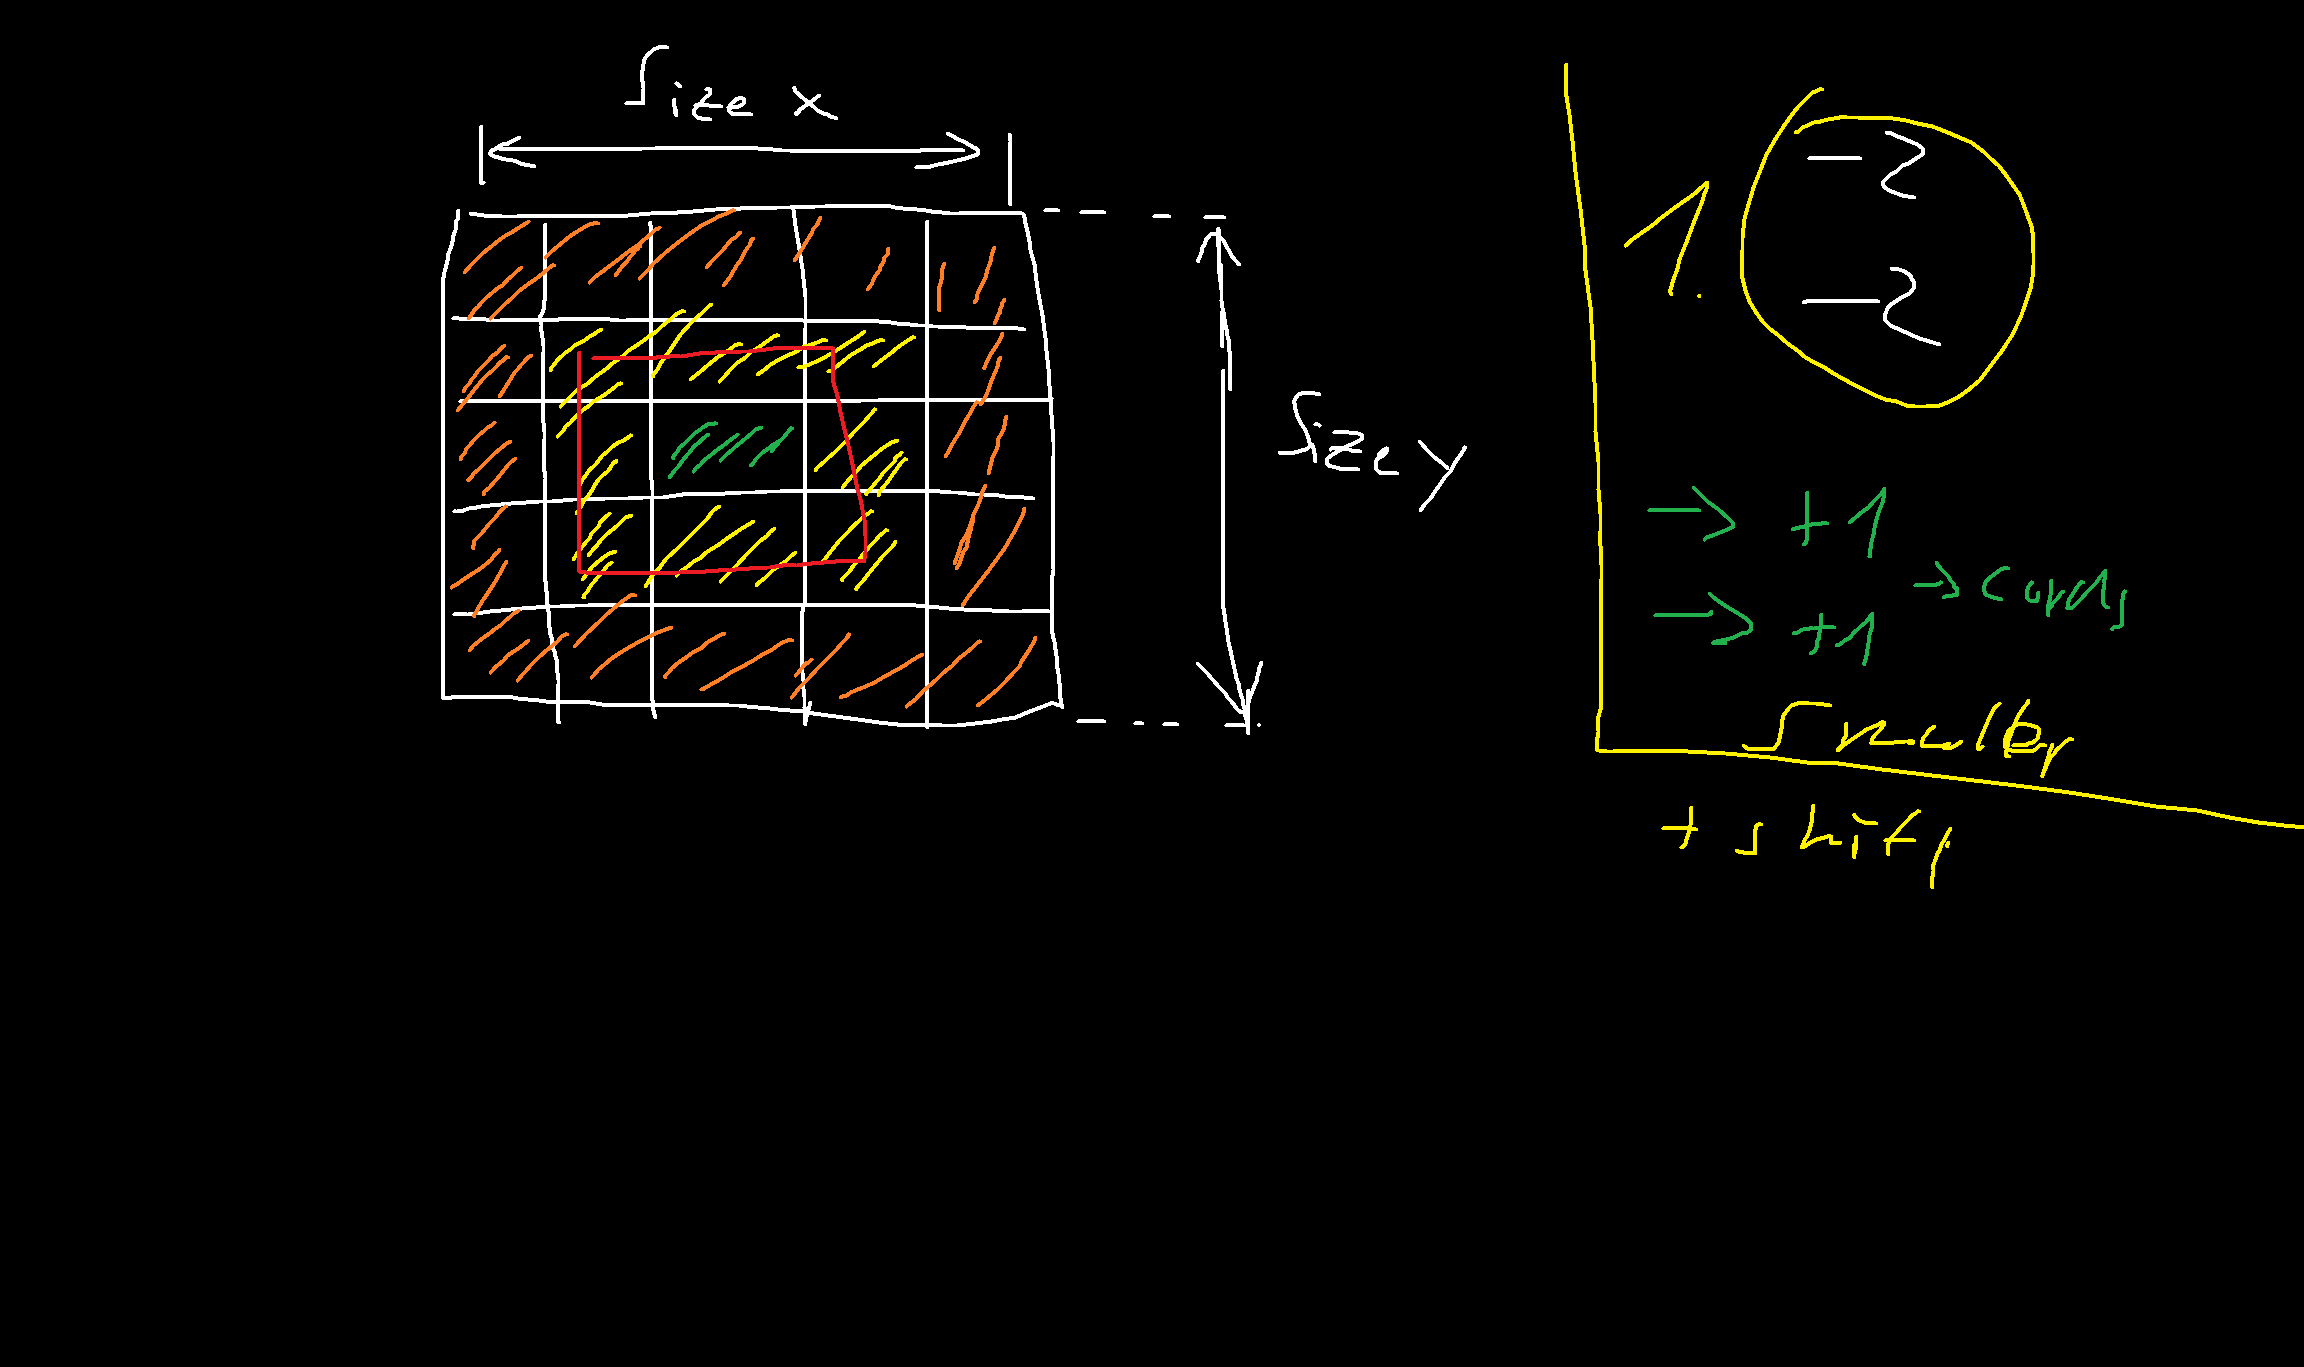 Size x
Size y
1.
-2
-2
→ +1
→ +1
→ cords
Smaller
+ shift